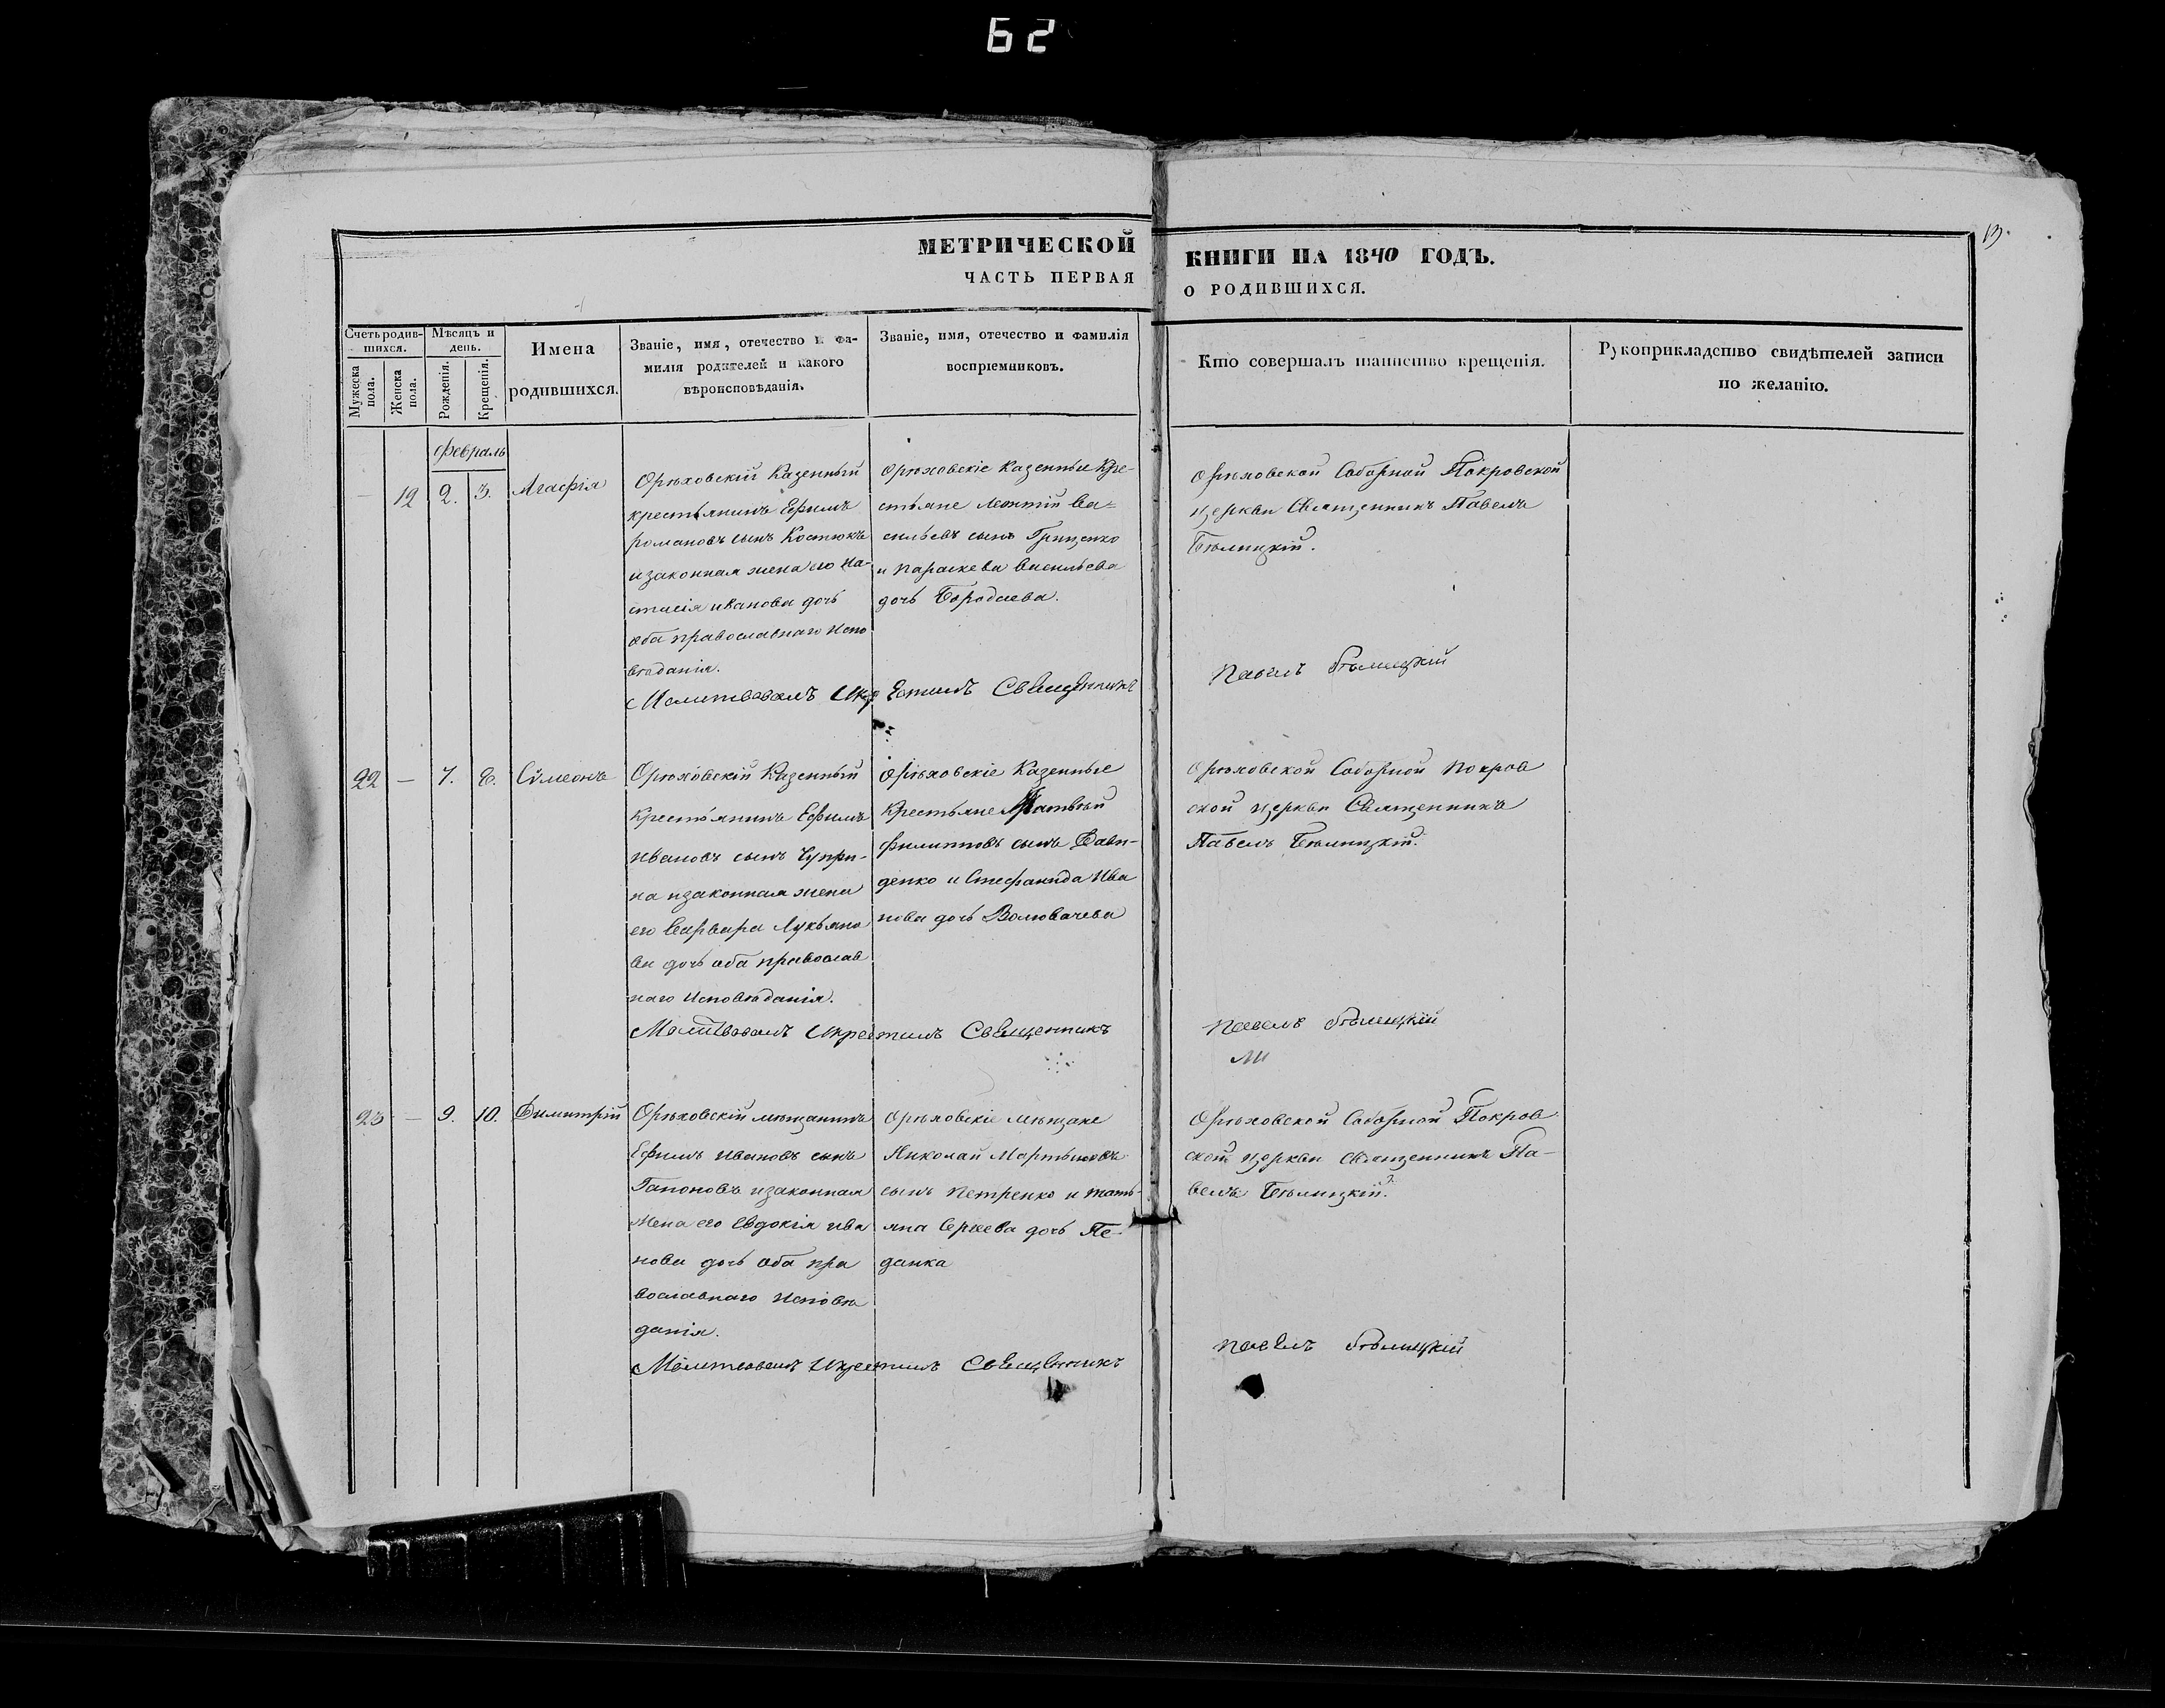 62
МЕТРИЧЕСКОЙ КНИГИ НА 1840 ГОДЪ.
ЧАСТЬ ПЕРВАЯ О РОДИВШИХСЯ.
13.
Счетъ родив-
шихся.
Мужеска пола.
Женска пола.
Мѣсяцъ и
день.
Рожденія.
Крещенія.
Имена
родившихся.
Званіе, имя, отечество и фа-
милія родителей и какого
вѣроисповѣданія.
Званіе, имя, отечество и фамилія
воспріемниковъ.
Кто совершалъ таинство крещенія.
Рукоприкладство свидѣтелей записи
по желанію.
Февраль
— 19 2. 3. Агафія
Орѣховскій Казенный
крестьянинъ Ефимъ
романовъ сынъ Костюкъ
и законная жена его На-
стасія иванова дочь
оба православнаго испо
вѣданія.
Орѣховскіе Казенные Кре-
стьяне Леонтій Ва-
сильевъ сынъ Гриценко
и Параскева Васильева
дочь Бородаева.
Орѣховской Соборной Покровской
церкви Священникъ Павелъ
Бѣлицкій.
Молитвовалъ Икрестилъ Священникъ Павелъ Бѣлицкій
22 — 7. 8. Сѵмеонъ
Орѣховскій Казенный
Крестьянинъ Ефимъ
Ивановъ сынъ Чупри-
на и законная жена
его Варвара Лукьяно
ва дочь оба православ
наго Исповѣданія.
Орѣховскіе Казенные
Крестьяне Матвѣй
филипповъ сынъ Дави-
денко и Стефанида Ива
нова дочь Воловачева
Орѣховской Соборной Покров
ской церкви Священникъ
Павелъ Бѣлицкій.
Молитвовалъ Икрестилъ Священникъ Павелъ Бѣлицкій
23 — 9. 10. Димитрій
Орѣховскій мѣщанинъ
Ефимъ Ивановъ сынъ
Гапоновъ и законная
жена его Евдокія ива
нова дочь оба пра
вославнаго Исповѣ
данія.
Орѣховскіе мѣщане
Николай Мартыновъ
сынъ Петренко и тать-
яна Сергѣева дочь Пе-
данка
Орѣховской Соборной Покров
ской церкви Священникъ Па-
велъ Бѣлицкій.
Молитвовалъ Икрестилъ Священникъ Павелъ Бѣлицкій